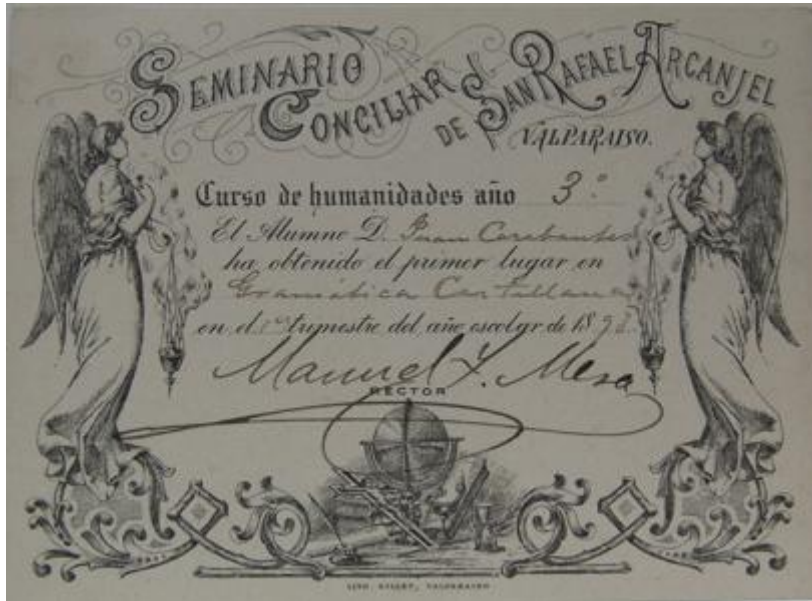 SEMINARIO
CONCILIAR
DE SAN RAFAEL ARCANJEL
VALPARAISO.
Curso de humanidades año 3.º
El Alumno D. Juan Cerebantes
ha obtenido el primer lugar en
Gramática Castellana
en el 1er trimestre del año escolar de 189
Manuel Mesa
RECTOR
LITO. GILLET, VALPARAISO